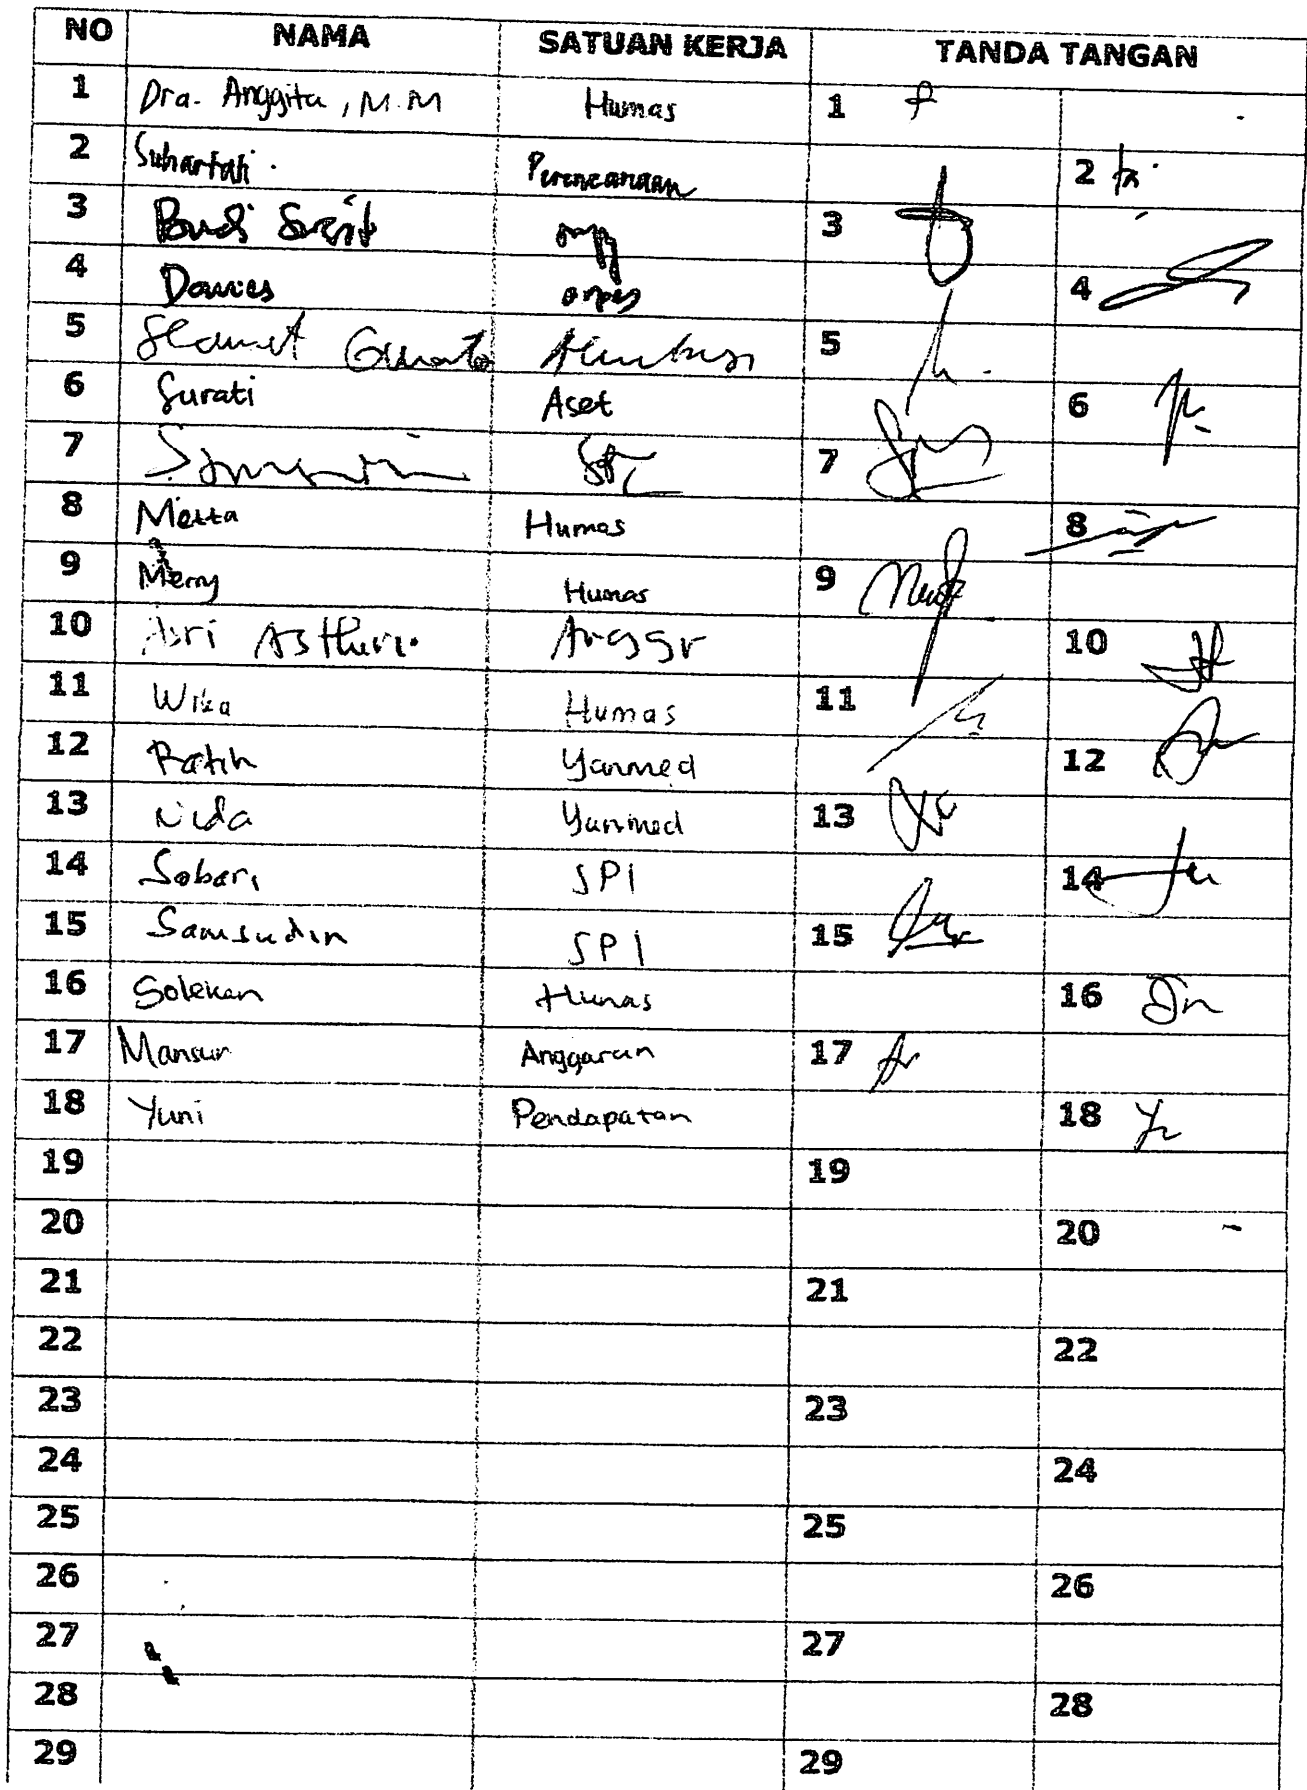 NO NAMA SATUAN KERJA TANDA TANGAN
1 Dra. Anggita, M.M Humas 1
2 Suhartati. Perencanaan 2
3 Budi 3
4 4
5 Slamet 5
6 Surati Aset 6
7 7
8 Metta Humas 8
9 Merry Humas 9
10 Asri 10
11 Wika Humas 11
12 Ratih Yanmed 12
13 Nida Yanmed 13
14 Sobari SPI 14
15 Samsudin SPI 15
16 Solekan Humas 16
17 Mansur Anggaran 17
18 Yuni Pendapatan 18
19 19
20 20
21 21
22 22
23 23
24 24
25 25
26 26
27 27
28 28
29 29